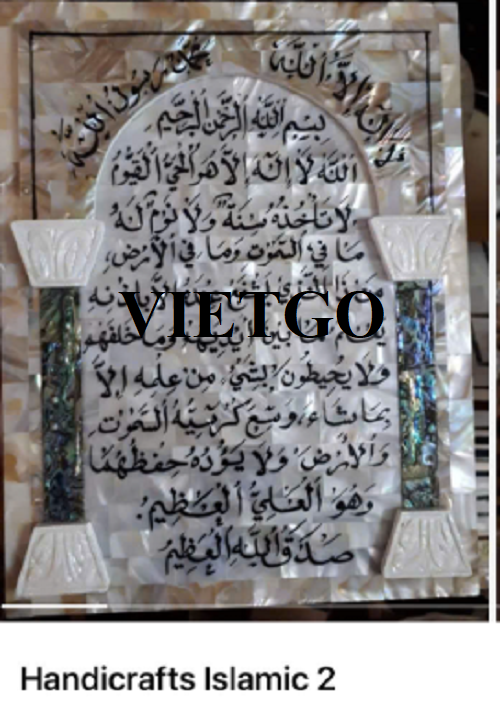 بِسْمِ اللَّهِ الرَّحْمَٰنِ الرَّحِيمِ
اللَّهُ لَا إِلَٰهَ إِلَّا هُوَ الْحَيُّ الْقَيُّومُ
لَا تَأْخُذُهُ سِنَةٌ وَلَا نَوْمٌ لَهُ
مَا فِي السَّمَٰوَٰتِ وَمَا فِي الْأَرْضِ
بِإِذْنِهِ
VIETGO
وَمَا خَلْفَهُمْ
وَلَا يُحِيطُونَ بِشَيْءٍ مِنْ عِلْمِهِ إِلَّا
بِمَا شَاءَ وَسِعَ كُرْسِيُّهُ السَّمَٰوَٰتِ
وَالْأَرْضَ وَلَا يَؤُدُهُ حِفْظُهُمَا
وَهُوَ الْعَلِيُّ الْعَظِيمُ
صَدَقَ اللَّهُ الْعَظِيمُ
Handicrafts Islamic 2